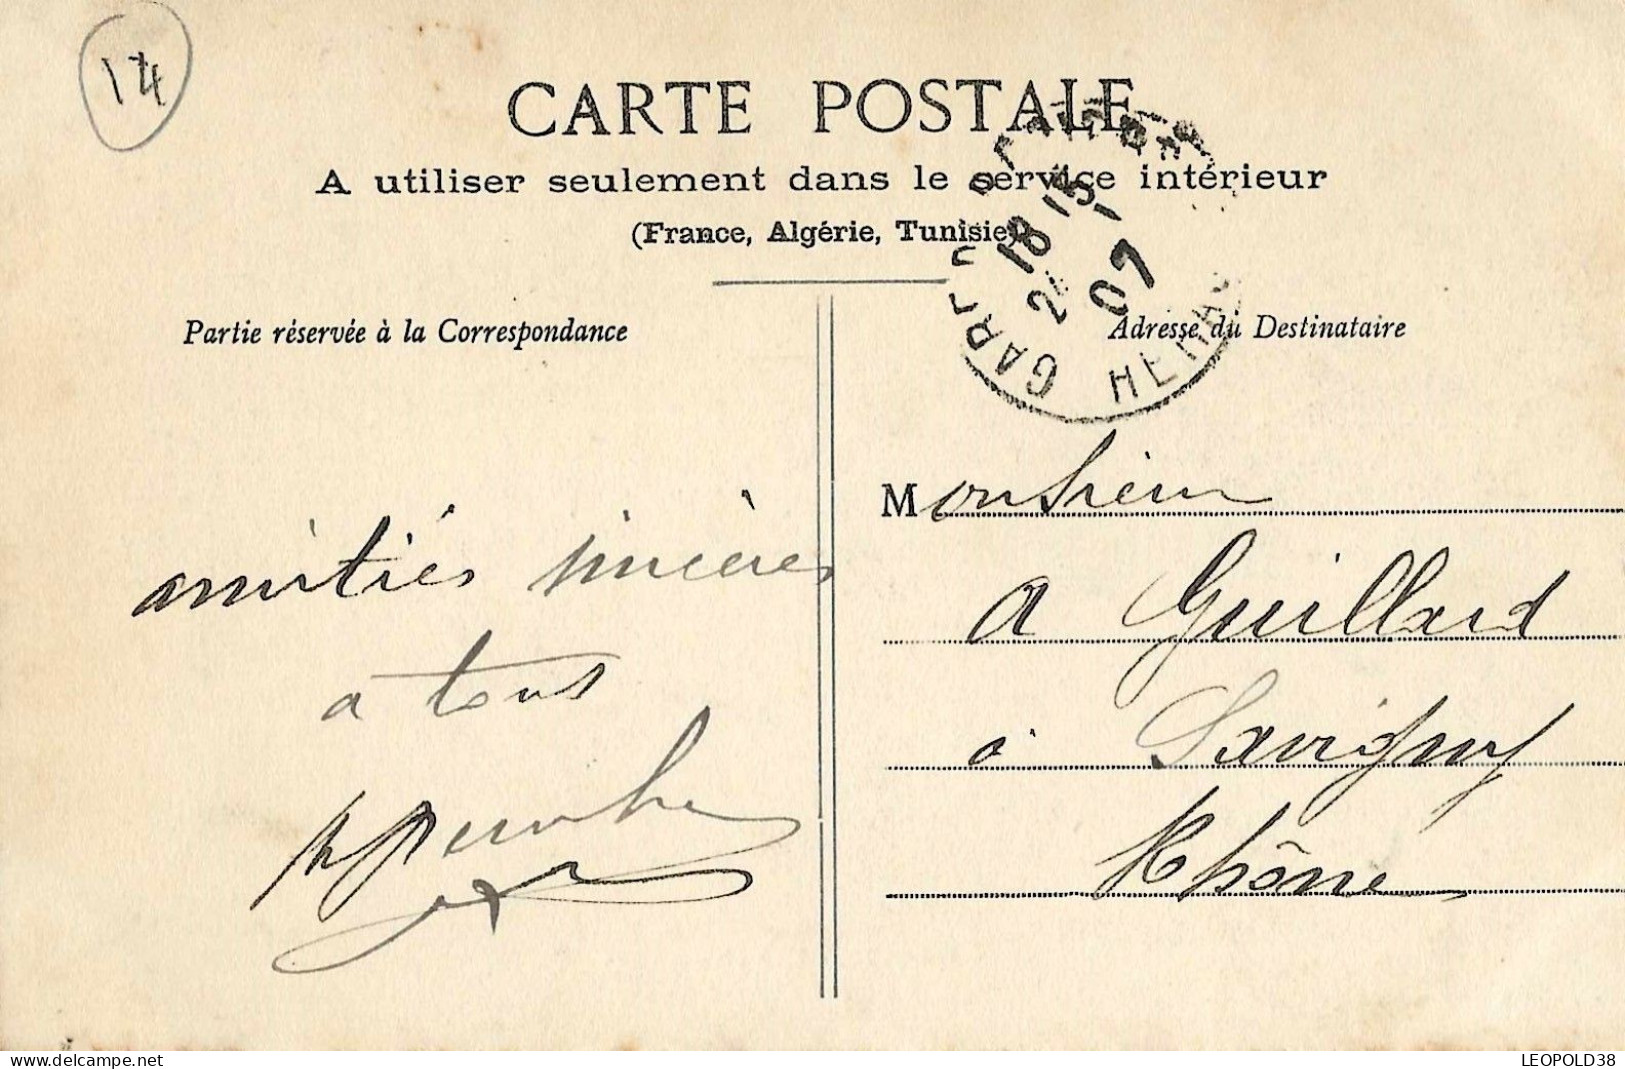 14
CARTE POSTALE
A utiliser seulement dans le service intérieur
(France, Algérie, Tunisie)
18 15
07
GARE
HERAU
Partie réservée à la Correspondance
Adresse du Destinataire
Monsieur
A Guillard
à Savigny
Rhône
amitiés sincères
a tous
www.delcampe.net
LEOPOLD38